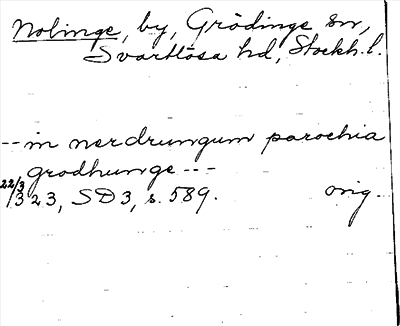 Nolinge, by, Grödinge sn,
Svartlösa hd, Stockh. l.
-- in nerdrungum parochia
grodhunge -- -
22/3 323, SD 3, s. 589. orig.